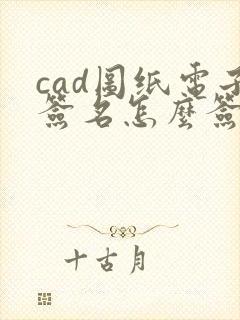 cad圖纸電子
簽名怎麼簽
十古月